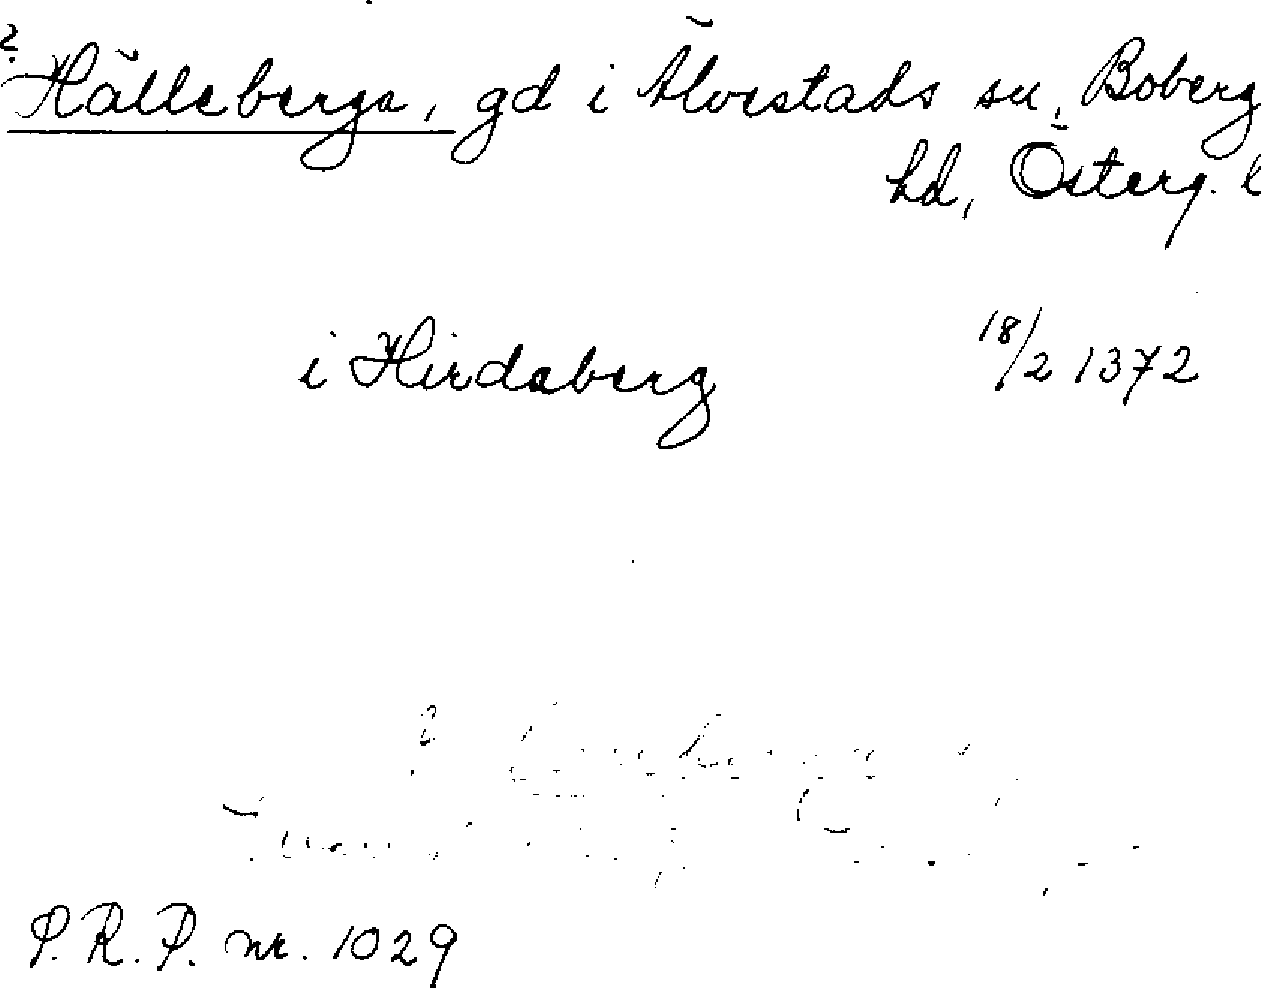 ? Hälleberga, gd i Älvestads sn, Boberg
hd, Österg. l
i Hirdaberg 18/2 1372
P.R.P. nr. 1029